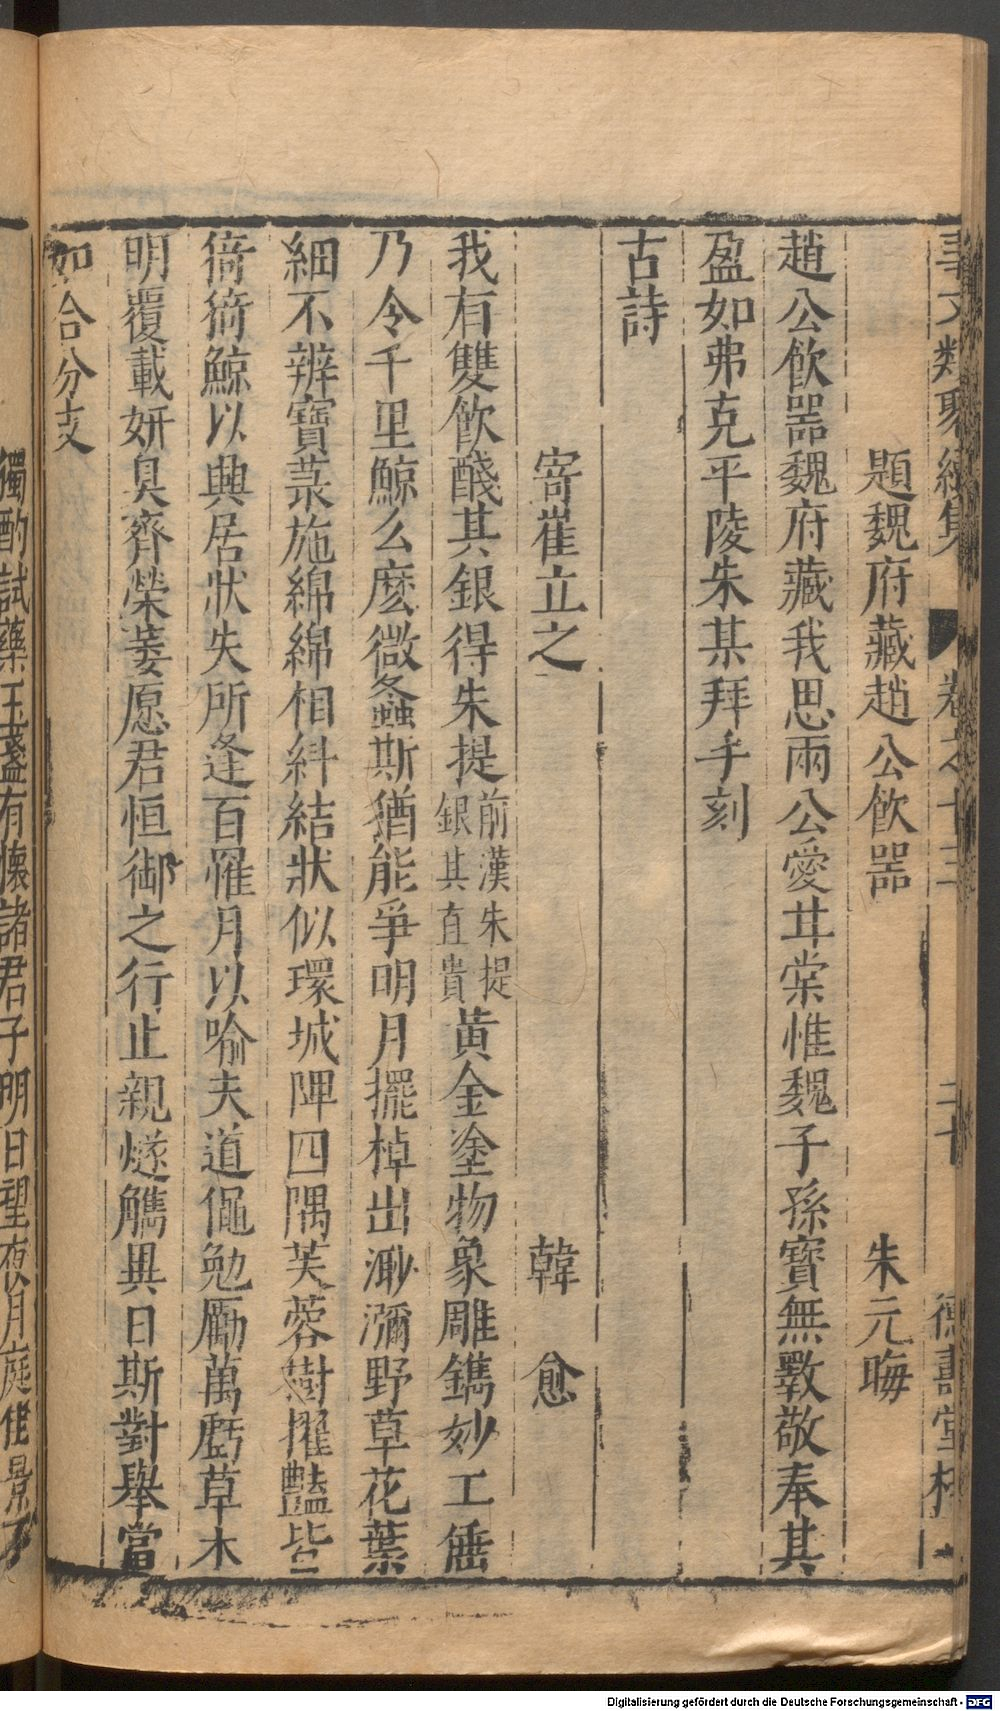 事文類聚續集 卷之十三 二十 德壽堂梓
題魏府藏趙公飲器 朱元晦
趙公飲器魏府藏我思兩公愛甘棠惟魏子孫寶無斁敬奉其
盈如弗克平陵朱某拜手刻
古詩
寄崔立之 韓愈
我有雙飲醆其銀得朱提前漢朱提銀其直貴黃金塗物象雕鐫妙工倕
乃令千里鯨么麼微螽斯猶能爭明月擺棹出渺瀰野草花葉
細不辨寶菉施綿綿相糾結狀似環城陴四隅芙蓉樹擢豔皆
猗猗鯨以興居狀失所逢百罹月以喻夫道僶勉勵萬虧草木
明覆載妍臭齊榮萎愿君恒御之行止親燧觿異日斯對舉當
如合分支
獨酌試藥玉盞有懷諸君子明日望夜月庭佳景不
Digitalisierung gefördert durch die Deutsche Forschungsgemeinschaft - DFG